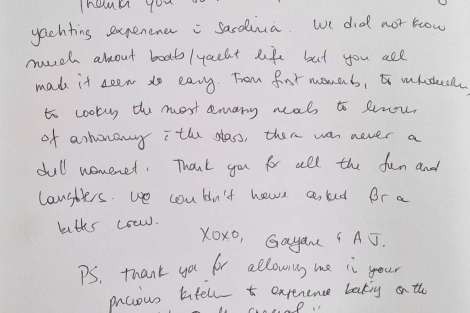 Thank you
yachting experience i Sardinia. We did not know
much about boats/yacht life but you all
made it seem so easy. From first moments, to
to cooking the most amazing meals to lessons
of astronomy i the stars, there was never a
dull moment. Thank you for all the fun and
laughters. We couldn't have asked for a
better crew.
XOXO, Gayane & AJ.
PS. Thank you for allowing me in your
precious kitchen to experience baking on the